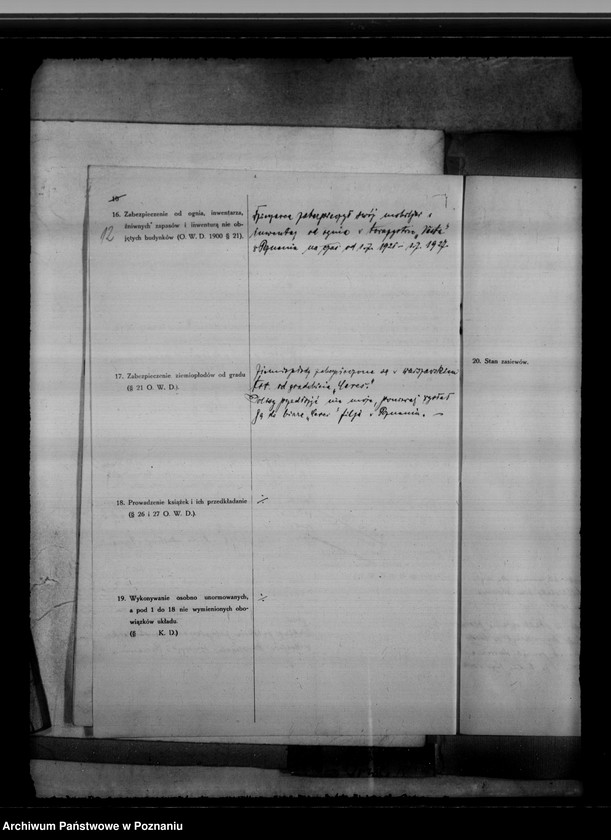 16. Zabezpieczenie od ognia, inwentarza,
żniwnych zapasów i inwentarzą nie ob-
jętych budynków (O. W. D. 1900 § 21).
12
Dzierżawca zabezpieczył swój mobiljar i
inwentarz od ognia w towarzystwie „Vesta"
w Poznaniu na czas od 1.7. 1926 – 1.7. 1927.
17. Zabezpieczenie ziemiopłodów od gradu
(§ 21 O. W. D.).
Ziemiopłody zabezpieczone są w warszawskiem
Tow. od gradobicia „Ceres".
Polisy przedłożyć nie może, ponieważ wysłał
ją do biura „Ceres" filja w Poznaniu. —
18. Prowadzenie książek i ich przedkładanie
(§ 26 i 27 O. W. D.).
·/·
19. Wykonywanie osobno unormowanych,
a pod 1 do 18 nie wymienionych obo-
wiązków układu.
(§ K. D.)
·/·
20. Stan zasiewów.
Archiwum Państwowe w Poznaniu